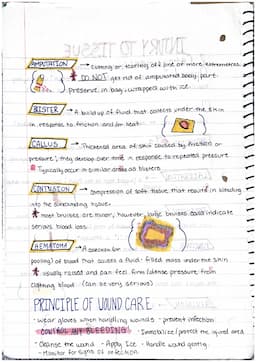 AMPUTATION → Cutting or tearing off one or more extremities.
★ DO NOT get rid of amputated body part.
Preserve in bag, wrapped with ice.
BLISTER → A build up of fluid that collects under the skin
in response to friction and/or heat.
CALLUS → Thickened area of skin caused by friction or
pressure, they develop over time in response to repeated pressure
Typically occur in similar areas as blisters
CONTUSION → compression of soft tissue that results in bleeding
into the surrounding tissue.
★ most bruises are minor, however large bruises could indicate
serious blood loss.
HEMATOMA → A collection (or
pooling) of blood that causes a fluid-filled mass under the skin
★ usually raised and can feel firm/dense pressure from
clotting blood (can be very serious)
PRINCIPLE OF WOUND CARE
- wear gloves when handling wounds - prevent infection
- CONTROL ANY BLEEDING - Immobilize/protect the injured area
- Cleanse the wound - Apply Ice - Handle wound gently
- Monitor for signs of infection